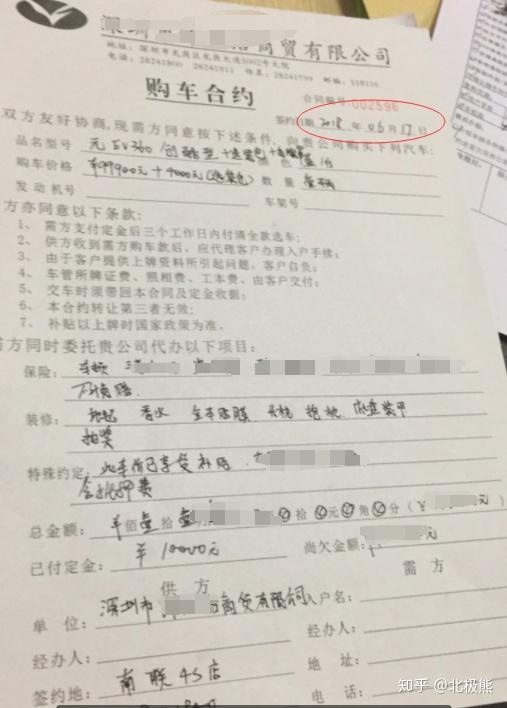 商贸有限公司
地址：深圳市龙岗区龙岗大道5002号大院
电话：28241800 28241811 传真：28241799 邮编：518116
购车合约
合同编号：002596
签约日期 2018 年 06 月 17 日
双方友好协商，现需方同意按下述条件，向贵公司购买下列汽车：
品名型号 元 EV360 创酷型
购车价格 ¥99900元 + 4000元 数量 壹辆
发动机号 车架号
方亦同意以下条款：
1、 需方支付定金后三个工作日内付清全款选车；
2、 供方收到需方购车款后，应代理客户办理入户手续；
3、 由于客户提供上牌资料所引起问题，客户自负；
4、 车管所牌证费、照相费、工本费、由客户交付；
5、 交车时须带回本合同及定金收据；
6、 本合约转让第三者无效；
7、 补贴以上牌时国家政策为准。
需方同时委托贵公司代办以下项目：
保险： 车损
不计免赔
装修： 地毯 香水 全车贴膜 底盘装甲
抽奖
特殊约定： 此车价已享受补贴
含抵押费
总金额： 佰壹拾壹 拾 元 角 分（¥
已付定金： ¥10000元 尚欠金额：
供 方 需 方
单 位： 深圳市 商贸有限公司 入户名：
经办人： 经办人：
签约地： 南联4S店 地 址：
电 话：
知乎 @北极熊